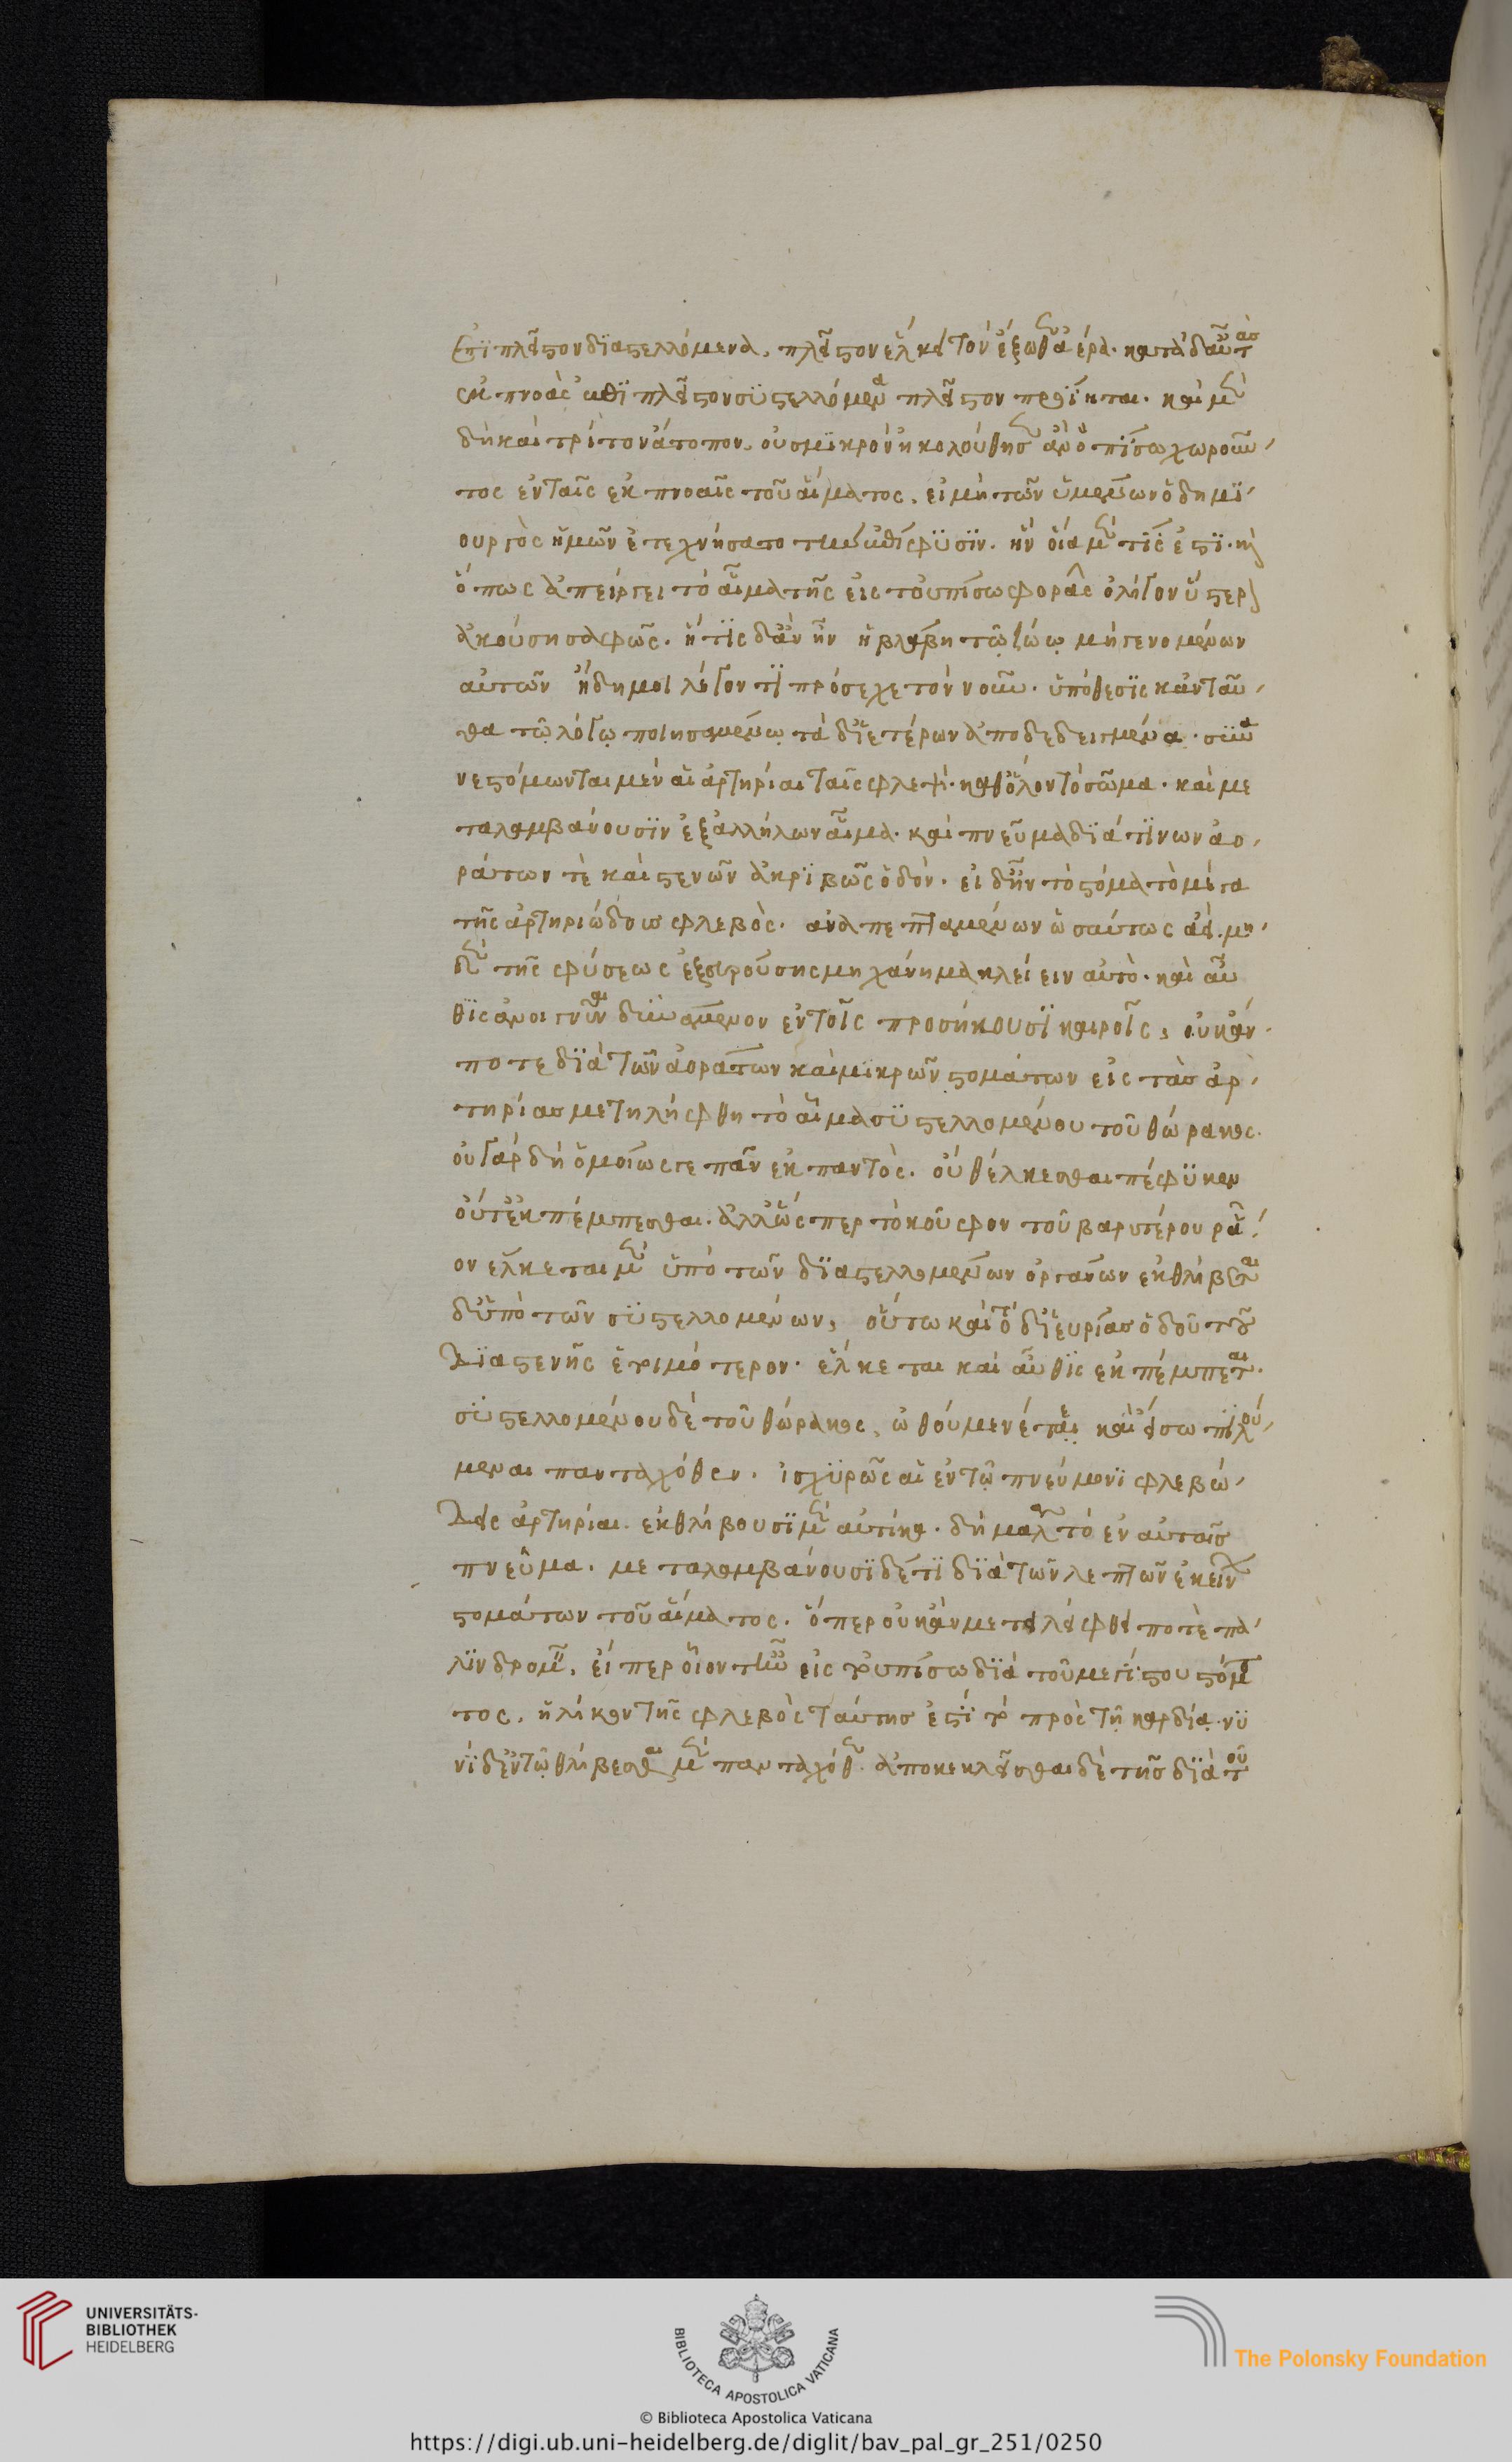 ἐπιπλεῖστον διαστελλόμενα. πλεῖστον ἕλκει τὸν ἔξωθεν ἀέρα. κατὰ δ' αὖ τὰς
ἐκπνοὰς ἐπιπλεῖστον συστελλόμενα πλεῖστον προΐεται. καὶ μὲν
δὴ καὶ τρίτον ἄτοπον. οὐ σμικρὸν ἠκολούθησεν ἂν ὀπίσω χωροῦν-
τος ἐν ταῖς ἐκπνοαῖς τοῦ αἵματος. εἰ μὴ τῶν ὑμένων ὁ δημι-
ουργὸς ἡμῶν ἐτεχνήσατο τὴν ἐπίφυσιν. ἣν οἵα μέν τίς ἐστι. καὶ
ὅπως ἀπείργει τὸ αἷμα τῆς εἰς τοὐπίσω φορᾶς ὀλίγον ὕστερον
ἀκούσῃ σαφῶς. ἥτις δ' ἂν ἦν ἡ βλάβη τῷ ζώῳ μὴ γενομένων
αὐτῶν ἤδη μοι λέγοντι πρόσεχε τὸν νοῦν. ὑπόθεσις κἀνταῦ-
θα τῷ λόγῳ ποιησαμένῳ τὰ δι' ἑτέρων ἀποδεδειγμένα. συνα
νεστόμωνται μὲν αἱ ἀρτηρίαι ταῖς φλεψὶ. καθ' ὅλον τὸ σῶμα. καὶ με
ταλαμβάνουσιν ἐξ ἀλλήλων αἷμα. καὶ πνεῦμα διά τινων ἀο-
ράτων τὲ καὶ στενῶν ἀκριβῶς ὁδῶν. εἰ δ' ἦν τὸ στόμα τὸ μέγα
τῆς ἀρτηριώδους φλεβὸς. ἀναπεπταμένων ὡσαύτως ἀεί. μη-
δὲν τῆς φύσεως ἐξευρούσης μηχάνημα κλείειν αὐτὸ. καὶ αὖ
θις ἀνοιγνῦναι δυνάμενον ἐν τοῖς προσήκουσι καιροῖς, οὐκ ἄν-
ποτε διὰ τῶν ἀοράτων καὶ μικρῶν στομάτων εἰς τὰς ἀρ-
τηρίας μετηλήφθη τὸ αἷμα συστελλομένου τοῦ θώρακος.
οὐ γὰρ δὴ ὁμοίως γε πᾶν ἐκ παντὸς. οὔθ' ἕλκεσθαι πέφυκεν
οὔτ' ἐκπέμπεσθαι. ἀλλ' ὥσπερ τὸ κοῦφον τοῦ βαρυτέρου ρᾷ-
ον ἕλκεται μὲν ὑπὸ τῶν διαστελλομένων ὀργάνων ἐκθλίβεται
δ' ὑπὸ τῶν συστελλομένων, οὕτω καὶ τὸ δι' εὐρείας ὁδοῦ τοῦ
διὰ στενῆς ἑτοιμότερον. ἕλκεται καὶ αὖθις ἐκπέμπεται.
συστελλομένου δὲ τοῦ θώρακος, ὠθούμεναί τε καὶ εἴσω πιλού-
μεναι πανταχόθεν. ἰσχυρῶς αἱ ἐν τῷ πνεύμονι φλεβώ-
δεις ἀρτηρίαι. ἐκθλίβουσι μὲν αὐτίκα. δὴ μάλα τὸ ἐν αὐταῖς
πνεῦμα. μεταλαμβάνουσι δέ τι διὰ τῶν λεπτῶν ἐκείνων
στομάτων τοῦ αἵματος. ὅπερ οὐκ ἂν μετελείφθη ποτὲ πα-
λινδρομεῖν. εἴπερ οἷόν τ' ἦν εἰς τοὐπίσω διὰ τοῦ μεγίστου στόμα
τος. ἡλίκον τῆς φλεβὸς ταύτης ἐστὶ τὸ πρὸς τῇ καρδίᾳ. νυ
νὶ δ' ἐν τῷ θλίβεσθαι μὲν πανταχόθεν. ἀποκεκλεῖσθαι δὲ τῆς διὰ τοῦ
UNIVERSITÄTS-
BIBLIOTHEK
HEIDELBERG
BIBLIOTECA APOSTOLICA VATICANA
The Polonsky Foundation
© Biblioteca Apostolica Vaticana
https://digi.ub.uni-heidelberg.de/diglit/bav_pal_gr_251/0250